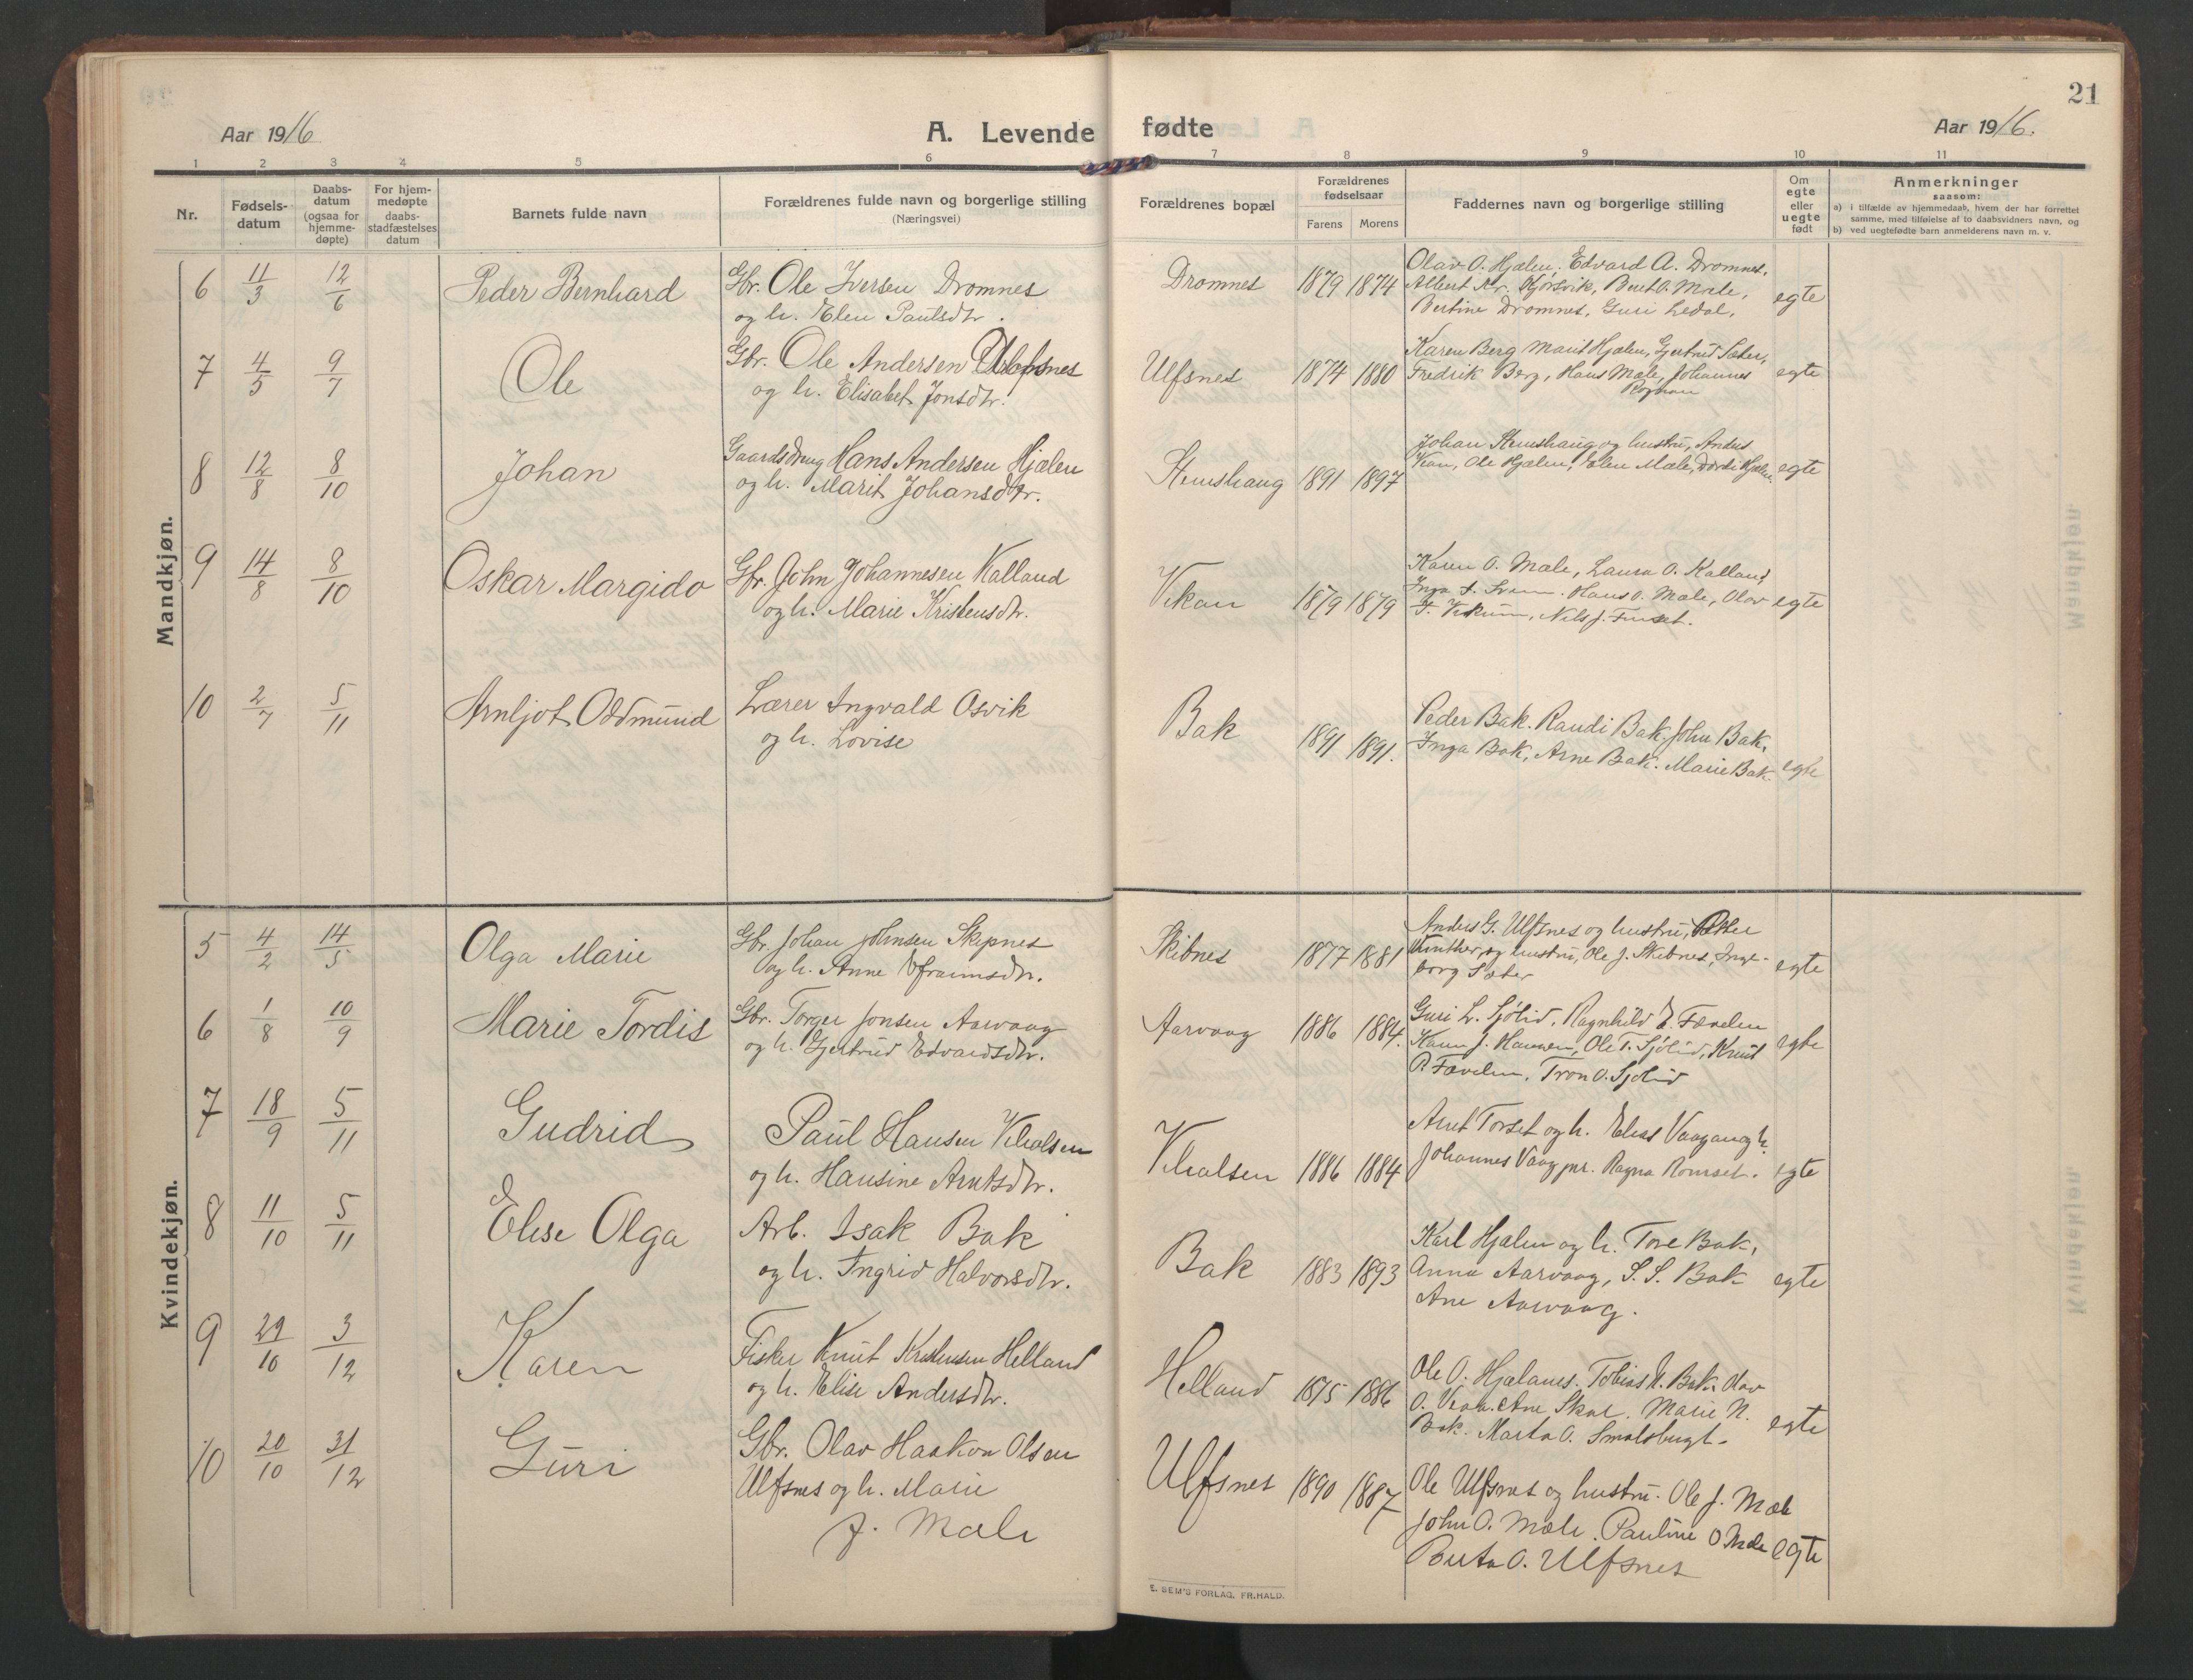 21
Aar 1916
A. Levende fødte
Aar 1916.
1 2 3 4 5 6 7 8 9 10 11
Nr.
Fødsels-
datum
Daabs-
datum
(ogsaa for
hjemme-
døpte)
For hjem-
medøpte
daabs-
stadfæstelses
datum
Barnets fulde navn
Forældrenes fulde navn og borgerlige stilling
(Næringsvei)
Forældrenes bopæl
Forældrenes
fødselsaar
Farens Morens
Faddernes navn og borgerlige stilling
Om
egte
eller
uegte
født
Anmerkninger
saasom:
a) i tilfælde av hjemmedaab, hvem der har forrettet
samme, med tilføielse af to daabsvidners navn, og
b) ved uegtefødte barn anmelderens navn m. v.
Mandkjøn.
6 11/3 12/6 Peder Bernhard
Gbr. Ole Iversen Dromnes
og h. Elen Paulsdtr.
Dromnes 1879 1874
Olav O. Hjælen, Edvard A. Dromnes,
Albert Kr. Berit O. Mæle,
Bertine Dromnes, Guri Ledal,
egte
7 4/5 9/7 Ole
Gbr. Ole Andersen Ulfsnes
og h. Elisabet Jonsdtr.
Ulfsnes 1874 1880
Karen Berg Marit Hjælen, Gjertrud Sæter,
Fredrik Berg, Hans Mæle, Johannes
egte
8 12/8 8/10 Johan
Gaardsdrug Hans Andersen Hjælen
og h. Marit Johansdtr.
Stemshaug 1891 1897
Johan Stemshaug og hustru, Anders
Ole Hjælen, Elen Mæle, Dordi Hjælen.
egte
9 14/8 8/10 Oskar Margido
Gbr. John Johannesen Kalland
og h. Marie Kristensdtr.
Vikan 1879 1879
Karen O. Mæle, Laura O. Kalland,
Inga Hans O. Mæle, Olav
Nils J. Furset.
egte
10 2/7 5/11 Arnljot Oddmund
Lærer Ingvald Osvik
og h. Lovise
Bak 1891 1891.
Peder Bak. Randi Bak. John Bak,
Inga Bak, Arne Bak. Marie Bak.
egte
Kvindekjøn.
5 4/2 14/5 Olga Marie
Gbr. Johan Johnsen Skipnes
og h. Anne Efraimsdtr.
Skibnes 1877 1881
Anders G. Ulfsnes og hustru,
Winther og hustru, Ole J. Skibnes, Inge-
borg Sæter
egte
6 1/8 10/9 Marie Tordis
Gbr. Torger Jonsen Aarvaag
og h. Gjertrud Edvardsdtr.
Aarvaag 1886 1884.
Guri L. Sjølid, Ragnhild E. Fævelen
Karen J. Hansen, Ole T. Sjølid, Knut
P. Fævelen, Tron O. Sjølid
egte
7 18/9 5/11 Gudrid
Paul Hansen
og h. Hansine Arntsdtr.
1886 1884
Arnt Torset og h. Elias Vaagan og h.
Johannes Ragna Romset.
egte
8 11/10 5/11 Elise Olga
Arb. Isak Bak
og h. Ingrid Halvorsdtr.
Bak 1883 1893
Karl Hjælen og h. Tore Bak,
Anna Aarvaag, S. S. Bak
Ane Aarvaag.
egte
9 29/10 3/12 Karen
Fisker Knut Kristensen Helland
og h. Elise Andersdtr.
Helland 1875 1886
Ole O. Hjælanes. Tobias N. Bak. Olav
O. Ane Skar. Marie N.
Bak. Marta O. Smalsbugt.
egte
10 20/10 31/12 Guri
Gbr. Olav Haakon Olsen
Ulfsnes og h. Marie
J. Mæle
Ulfsnes 1890 1887
Ole Ulfsnes og hustru. Ole J. Mæle
John O. Mæle. Pauline O Mæle
Berta O. Ulfsnes
egte
E. SEM'S FORLAG, FR.HALD.